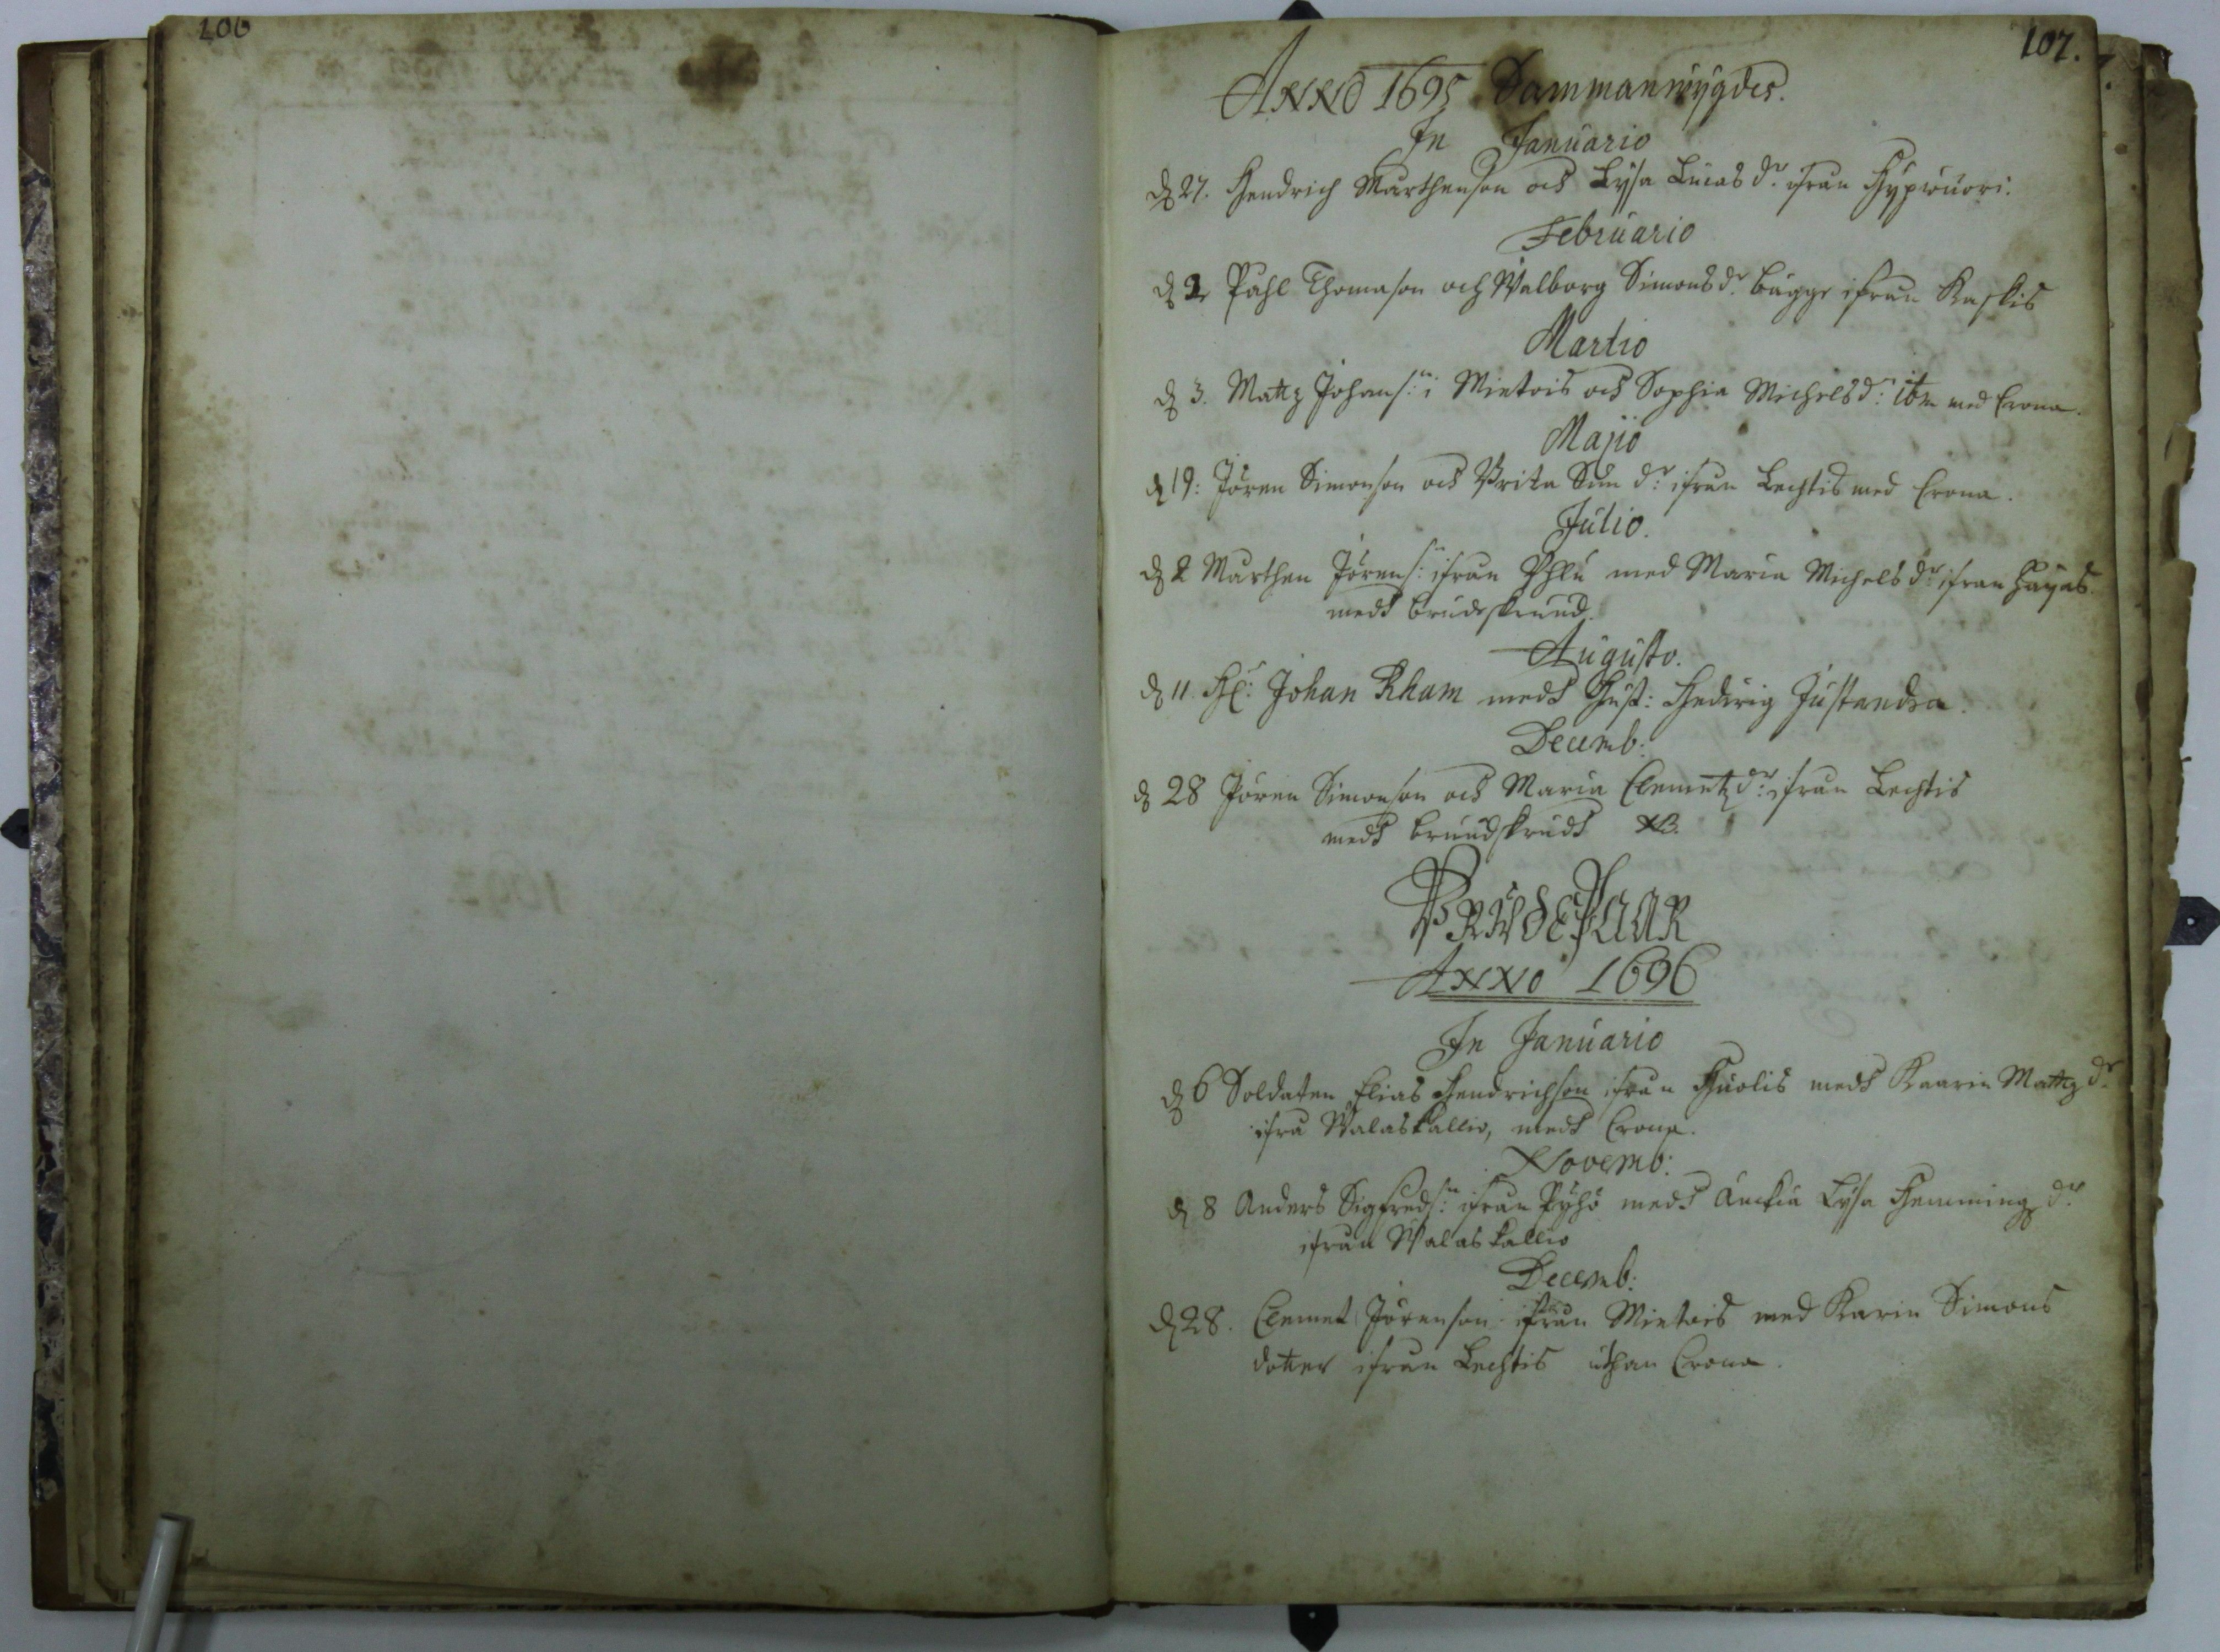 106
107.
Anno 1695 Sammanwijgdes.
In Januario
d 27. Hendrich Marthenson och Lysa Lucas dr. ifrån Hypiwuori.
Februario
d 2 Pahl Thomason och Walborg Simons dr. bägge ifrån Kaskis
Martio
d 3. Mattz Johans: i Mietois och Sophia Michels dr: ibm med Crona.
Majo
d 19: Jören Simonson och Brita Sim dr: ifrån Lechtis med Crona.
Julio.
d 2 Marthen Jörens: ifrån Yhlu med Maria Michels dr: ifrån
medh brudeskrud.
Augusto.
d 11. Hl: Johan Rham medh Hust: Hedwig Justandra.
Decemb:
d 28 Jören Simonson och Maria Clemetz dr: ifrån Lechtis
medh bruudskrudh NB.
BRUdePAAR
Anno 1696
In Januario
d 6 Soldaten Elias Hendrichson ifrån Huolis medh Kaarin Mattz dr
ifrå Walaskallio, medh Crona.
Novemb:
d 8 Anders Sigfreds: ifrån Pyhö medh änckia Lysa Hemmingz dr.
ifrån Walaskallio
Decemb:
d 28. Clemet Jörenson ifrån Mietois med Karin Simons
dotter ifrån Lechtis uthan Crona.